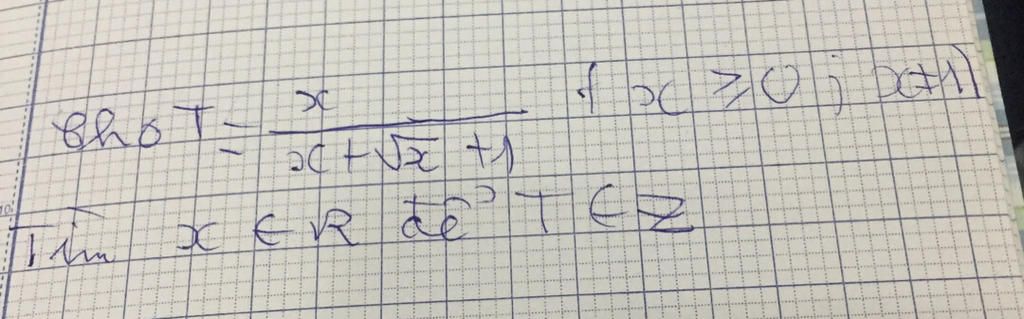 Cho T = \frac{x}{x + \sqrt{x} + 1} (x ≥ 0; x ≠ 1)
Tìm x ∈ R để T ∈ Z